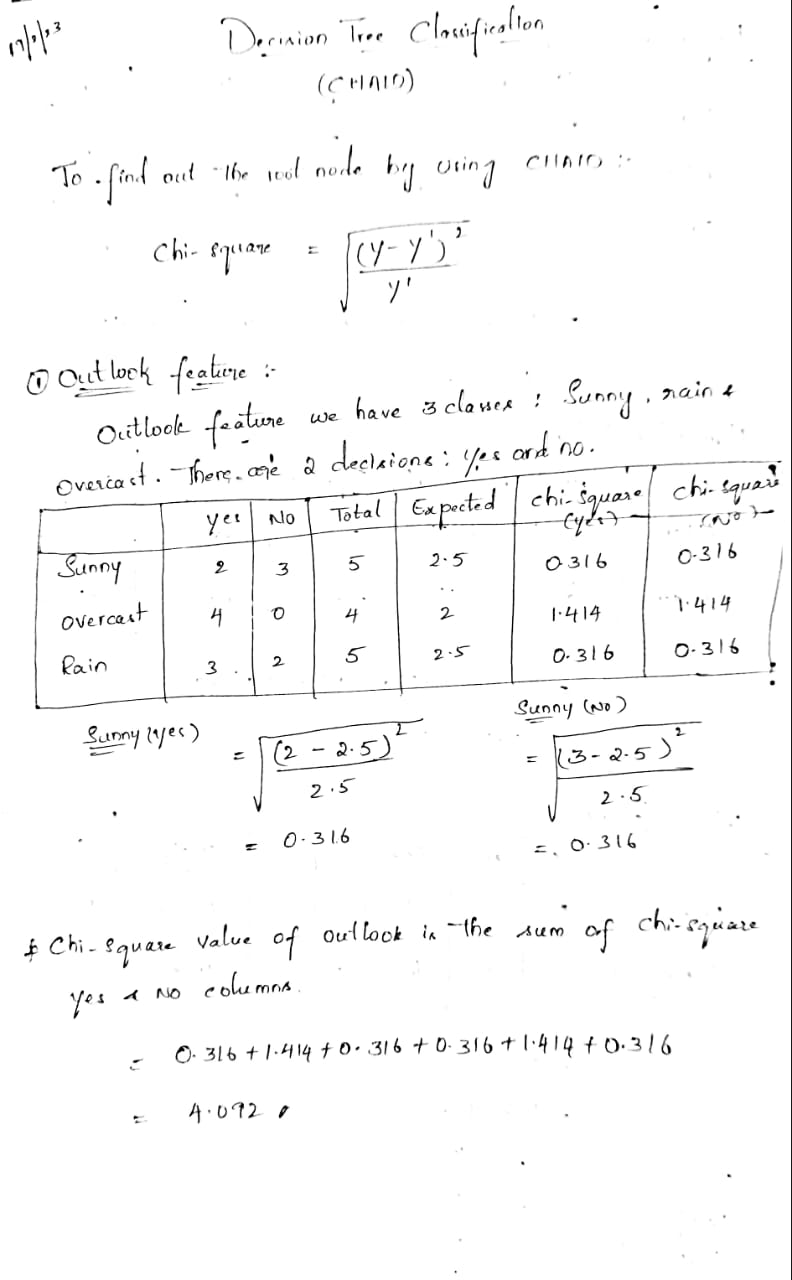 Decision Tree Classification
(CHAID)
To find out the root node by using CHAID :-
Chi-square = √((y - y')² / y')
① Outlook feature :-
Outlook feature we have 3 classes : Sunny, rain &
Overcast. There are 2 decisions : Yes and no.
Yes No Total Expected chi-square (yes) chi-square (No)
Sunny 2 3 5 2.5 0.316 0.316
Overcast 4 0 4 2 1.414 1.414
Rain 3 2 5 2.5 0.316 0.316
Sunny (yes) Sunny (No)
= √((2 - 2.5)² / 2.5) = √((3 - 2.5)² / 2.5)
= 0.316 = 0.316
Chi-square value of outlook is the sum of chi-square
Yes & No columns.
= 0.316 + 1.414 + 0.316 + 0.316 + 1.414 + 0.316
= 4.092